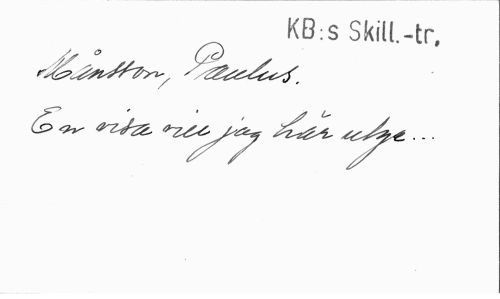 KB:s Skill.-tr.
Månsson, Paulus.
En visa vill jag här utge...